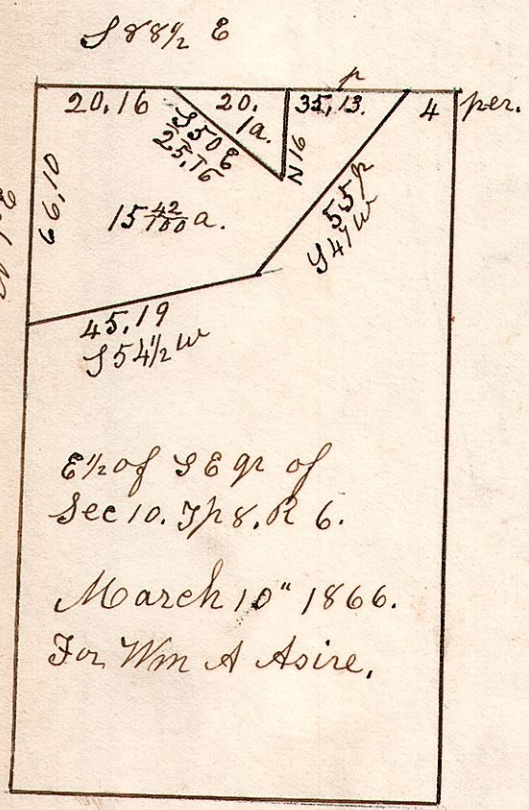 S 88½ E
20,16
20.
1a.
35,13.
p
4
per.
S 50 E
25,76
N 16
66,10
15 42/100 a.
55 p
S 47 W
45,19
S 54½ W
E½ of S E qr of
Sec 10. Tp 8. R 6.
March 10" 1866.
For Wm A Asire.